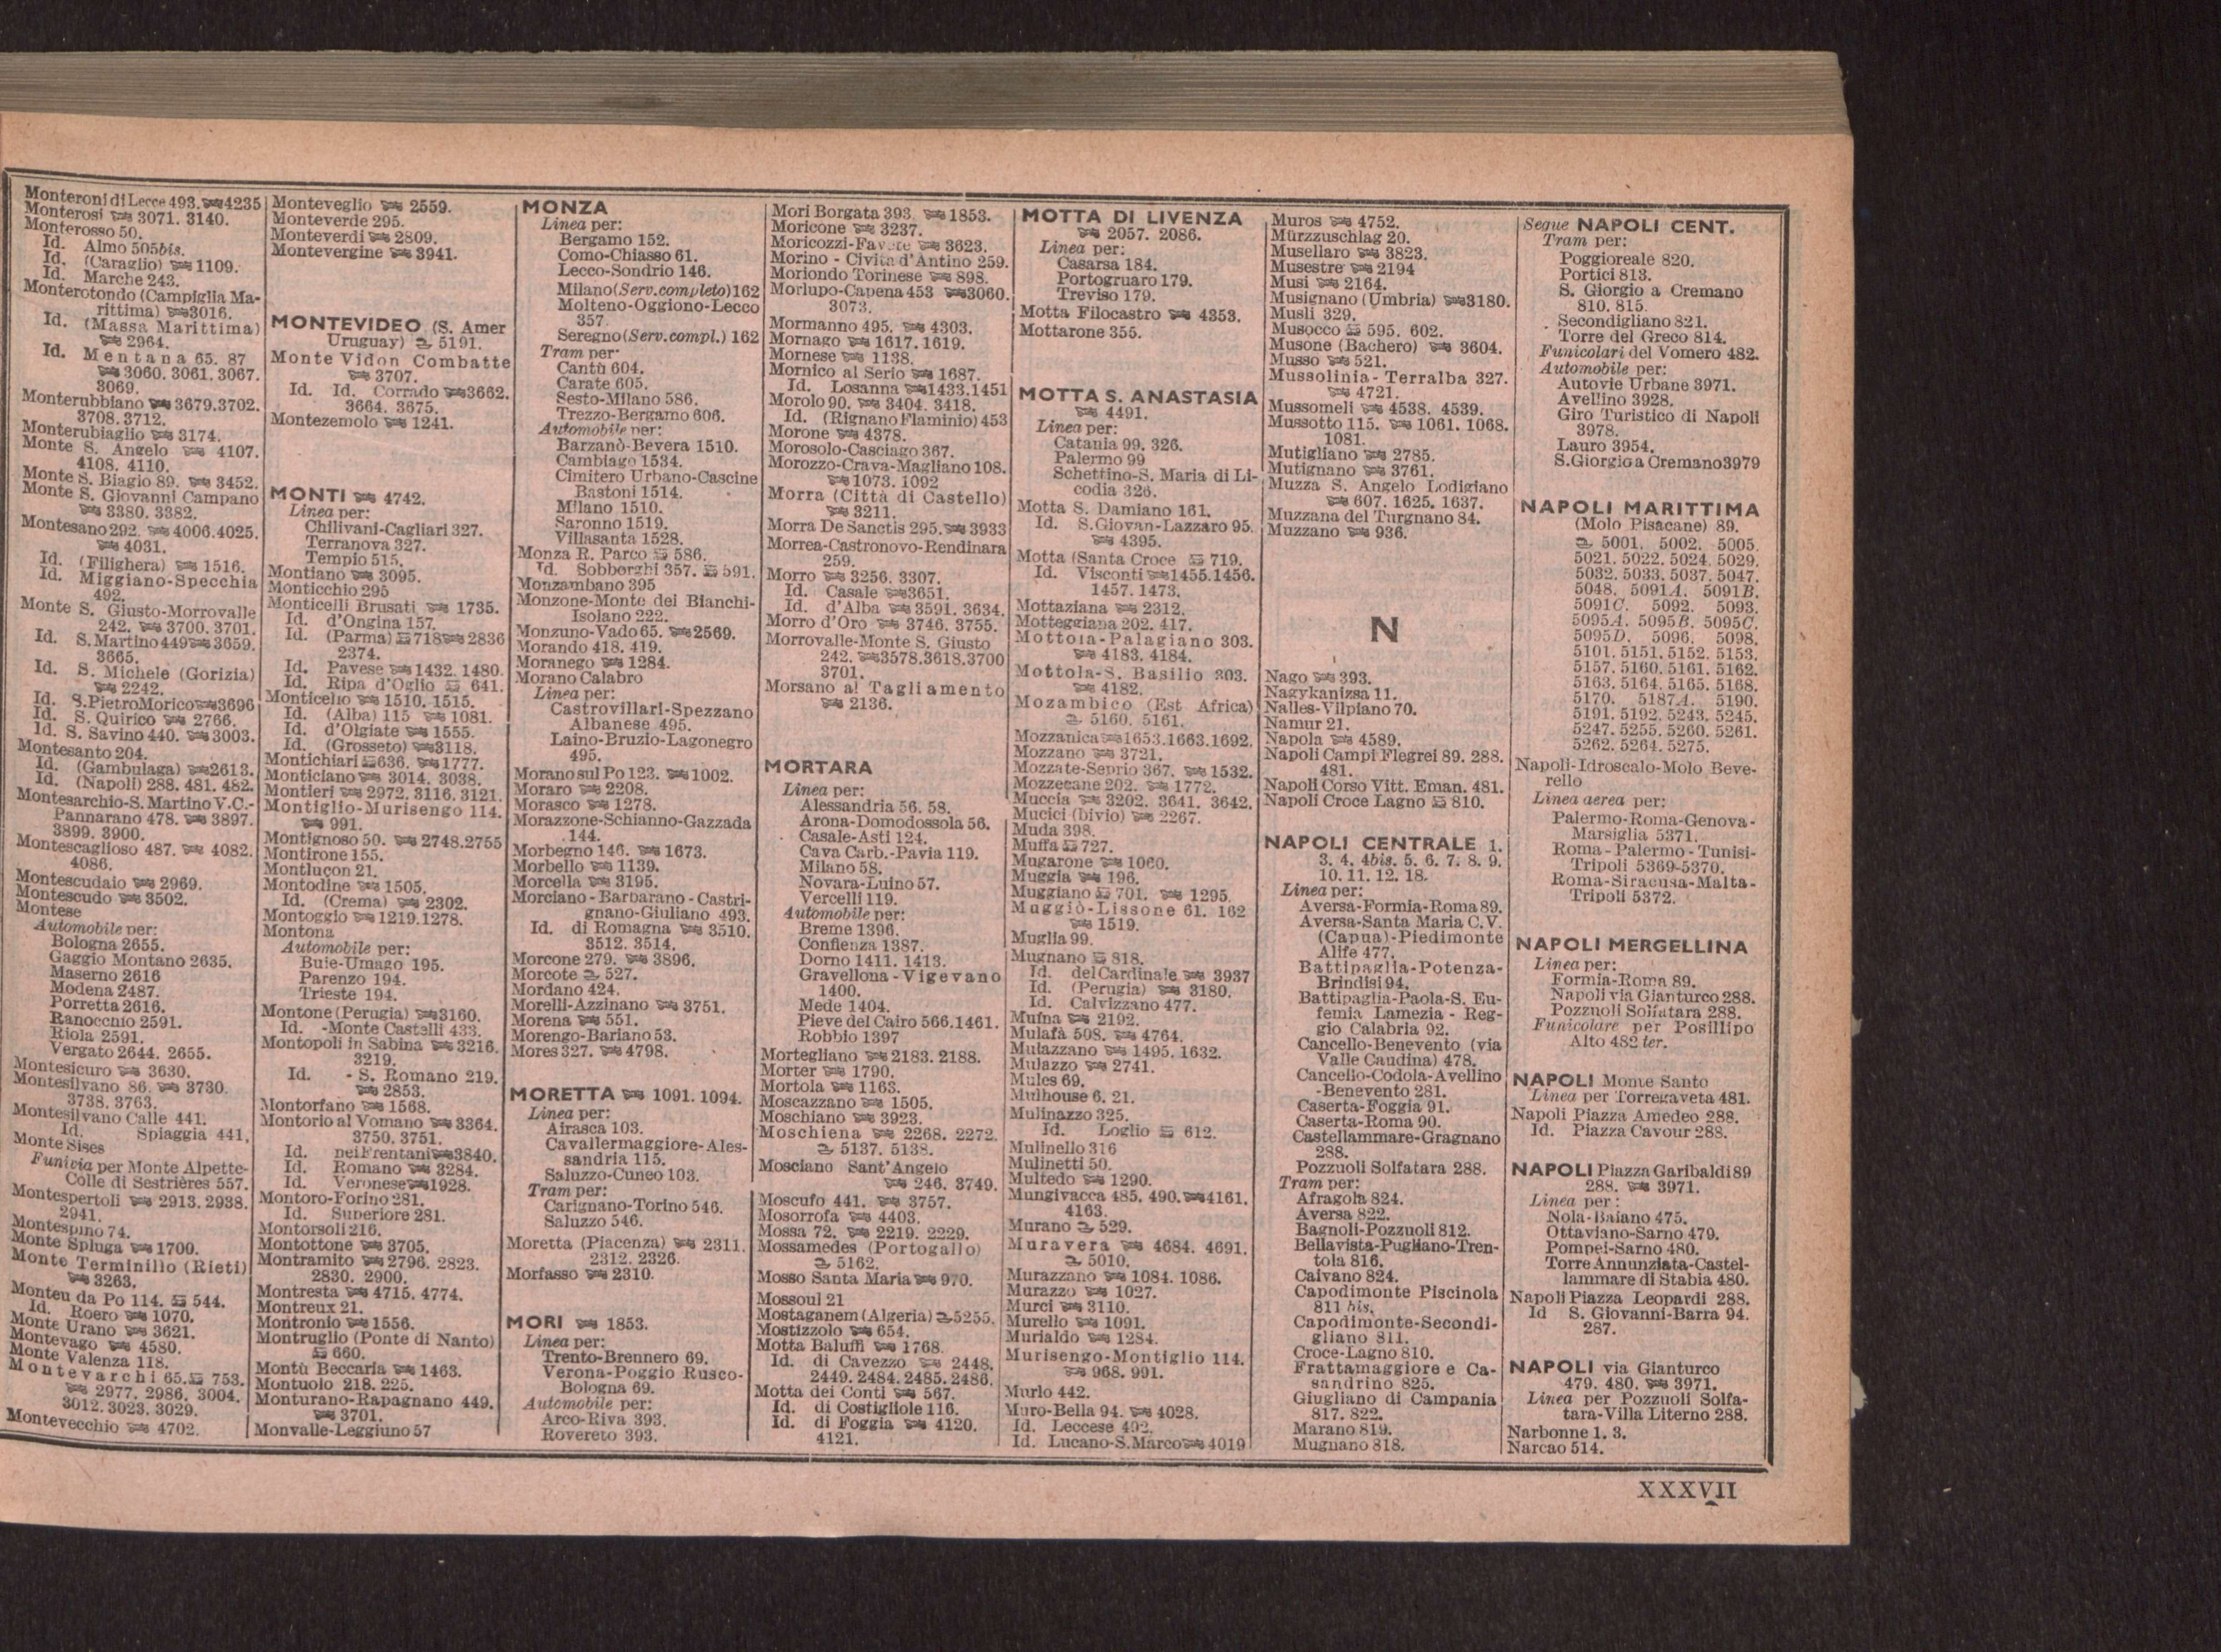 Monteroni di Lecce 493. 4235
Monterosi 3071. 3140.
Monterosso 50.
Id. Almo 505bis.
Id. (Caraglio) 1109.
Id. Marche 243.
Monterotondo (Campiglia Ma-
rittima) 3016.
Id. (Massa Marittima)
2964.
Id. Mentana 65. 87
3060. 3061. 3067.
3069.
Monterubbiano 3679.3702.
3708. 3712.
Monterubiaglio 3174.
Monte S. Angelo 4107.
4108. 4110.
Monte S. Biagio 89. 3452.
Monte S. Giovanni Campano
3380. 3382.
Montesano 292. 4006.4025.
4031.
Id. (Filighera) 1516.
Id. Miggiano-Specchia
492.
Monte S. Giusto-Morrovalle
242. 3700. 3701.
Id. S.Martino 449 3659.
3665.
Id. S. Michele (Gorizia)
2242.
Id. S.PietroMorico 3696
Id. S. Quirico 2766.
Id. S. Savino 440. 3003.
Montesanto 204.
Id. (Gambulaga) 2613.
Id. (Napoli) 288. 481. 482.
Montesarchio-S. Martino V.C.-
Pannarano 478. 3897.
3899. 3900.
Montescaglioso 487. 4082.
4086.
Montescudaio 2969.
Montescudo 3502.
Montese
Automobile per:
Bologna 2655.
Gaggio Montano 2635.
Maserno 2616
Modena 2487.
Porretta 2616.
Ranocchio 2591.
Riola 2591.
Vergato 2644. 2655.
Montesicuro 3630.
Montesilvano 86. 3730.
3738. 3763.
Montesilvano Calle 441.
Id. Spiaggia 441.
Monte Sises
Funivia per Monte Alpette-
Colle di Sestrières 557.
Montespertoli 2913. 2938.
2941.
Montespino 74.
Monte Spluga 1700.
Monte Terminillo (Rieti)
3263.
Monteu da Po 114. 544.
Id. Roero 1070.
Monte Urano 3621.
Montevago 4580.
Monte Valenza 118.
Montevarchi 65. 753.
2977. 2986. 3004.
3012. 3023. 3029.
Montevecchio 4702.
Monteveglio 2559.
Monteverde 295.
Monteverdi 2809.
Montevergine 3941.
MONTEVIDEO (S. Amer
Uruguay) 5191.
Monte Vidon Combatte
3707.
Id. Id. Corrado 3662.
3664. 3675.
Montezemolo 1241.
MONTI 4742.
Linea per:
Chilivani-Cagliari 327.
Terranova 327.
Tempio 515.
Montiano 3095.
Monticchio 295
Monticelli Brusati 1735.
Id. d'Ongina 157.
Id. (Parma) 718 2836
2374.
Id. Pavese 1432. 1480.
Id. Ripa d'Oglio 641.
Monticello 1510. 1515.
Id. (Alba) 115 1081.
Id. d'Olgiate 1555.
Id. (Grosseto) 3118.
Montichiari 636. 1777.
Monticiano 3014. 3038.
Montieri 2972. 3116. 3121.
Montiglio-Murisengo 114.
991.
Montignoso 50. 2748.2755
Montirone 155.
Montluçon 21.
Montodine 1505.
Id. (Crema) 2302.
Montoggio 1219.1278.
Montona
Automobile per:
Buie-Umago 195.
Parenzo 194.
Trieste 194.
Montone (Perugia) 3160.
Id. -Monte Castelli 433.
Montopoli in Sabina 3216.
3219.
Id. - S. Romano 219.
2853.
Montorfano 1568.
Montorio al Vomano 3364.
3750. 3751.
Id. nei Frentani 3840.
Id. Romano 3284.
Id. Veronese 1928.
Montoro-Forino 281.
Id. Superiore 281.
Montorsoli 216.
Montottone 3705.
Montramito 2796. 2823.
2830. 2900.
Montresta 4715. 4774.
Montreux 21.
Montronio 1556.
Montruglio (Ponte di Nanto)
660.
Montù Beccaria 1463.
Montuolo 218. 225.
Monturano-Rapagnano 449.
3701.
Monvalle-Leggiuno 57
MONZA
Linea per:
Bergamo 152.
Como-Chiasso 61.
Lecco-Sondrio 146.
Milano (Serv.completo) 162
Molteno-Oggiono-Lecco
357.
Seregno (Serv.compl.) 162
Tram per:
Cantù 604.
Carate 605.
Sesto-Milano 586.
Trezzo-Bergamo 606.
Automobile per:
Barzanò-Bevera 1510.
Cambiago 1534.
Cimitero Urbano-Cascine
Bastoni 1514.
Milano 1510.
Saronno 1519.
Villasanta 1528.
Monza R. Parco 586.
Id. Sobborghi 357. 591.
Monzambano 395
Monzone-Monte dei Bianchi-
Isolano 222.
Monzuno-Vado 65. 2569.
Morando 418. 419.
Moranego 1284.
Morano Calabro
Linea per:
Castrovillari-Spezzano
Albanese 495.
Laino-Bruzio-Lagonegro
495.
Morano sul Po 123. 1002.
Moraro 2208.
Morasco 1278.
Morazzone-Schianno-Gazzada
144.
Morbegno 146. 1673.
Morbello 1139.
Morcella 3195.
Morciano-Barbarano-Castri-
gnano-Giuliano 493.
Id. di Romagna 3510.
3512. 3514.
Morcone 279. 3896.
Morcote 527.
Mordano 424.
Morelli-Azzinano 3751.
Morena 551.
Morengo-Bariano 53.
Mores 327. 4798.
MORETTA 1091. 1094.
Linea per:
Airasca 103.
Cavallermaggiore-Ales-
sandria 115.
Saluzzo-Cuneo 103.
Tram per:
Carignano-Torino 546.
Saluzzo 546.
Moretta (Piacenza) 2311.
2312. 2326.
Morfasso 2310.
MORI 1853.
Linea per:
Trento-Brennero 69.
Verona-Poggio Rusco-
Bologna 69.
Automobile per:
Arco-Riva 393.
Rovereto 393.
Mori Borgata 393. 1853.
Moricone 3237.
Moricozzi-Favete 3623.
Morino - Civita d'Antino 259.
Moriondo Torinese 898.
Morlupo-Capena 453 3060.
3073.
Mormanno 495. 4303.
Mornago 1617. 1619.
Mornese 1138.
Mornico al Serio 1687.
Id. Losanna 1433.1451
Morolo 90. 3404. 3418.
Id. (Rignano Flaminio) 453
Morone 4378.
Morosolo-Casciago 367.
Morozzo-Crava-Magliano 108.
1073. 1092
Morra (Città di Castello)
3211.
Morra De Sanctis 295. 3933
Morrea-Castronovo-Rendinara
259.
Morro 3256. 3307.
Id. Casale 3651.
Id. d'Alba 3591. 3634.
Morro d'Oro 3746. 3755.
Morrovalle-Monte S. Giusto
242. 3578.3618.3700
3701.
Morsano al Tagliamento
2136.
MORTARA
Linea per:
Alessandria 56. 58.
Arona-Domodossola 56.
Casale-Asti 124.
Cava Carb.-Pavia 119.
Milano 58.
Novara-Luino 57.
Vercelli 119.
Automobile per:
Breme 1396.
Confienza 1387.
Dorno 1411. 1413.
Gravellona-Vigevano
1400.
Mede 1404.
Pieve del Cairo 566.1461.
Robbio 1397
Mortegliano 2183. 2188.
Morter 1790.
Mortola 1163.
Moscazzano 1505.
Moschiano 3923.
Moschiena 2268. 2272.
5137. 5138.
Mosciano Sant'Angelo
246. 3749.
Moscufo 441. 3757.
Mosorrofa 4403.
Mossa 72. 2219. 2229.
Mossamedes (Portogallo)
5162.
Mosso Santa Maria 970.
Mossoul 21
Mostaganem (Algeria) 5255.
Mostizzolo 654.
Motta Baluffi 1768.
Id. di Cavezzo 2448.
2449. 2484. 2485. 2486.
Motta dei Conti 567.
Id. di Costigliole 116.
Id. di Foggia 4120.
4121.
MOTTA DI LIVENZA
2057. 2086.
Linea per:
Casarsa 184.
Portogruaro 179.
Treviso 179.
Motta Filocastro 4353.
Mottarone 355.
MOTTA S. ANASTASIA
4491.
Linea per:
Catania 99. 326.
Palermo 99
Schettino-S. Maria di Li-
codia 326.
Motta S. Damiano 161.
Id. S.Giovan-Lazzaro 95.
4395.
Motta (Santa Croce 719.
Id. Visconti 1455.1456.
1457. 1473.
Mottaziana 2312.
Motteggiana 202. 417.
Mottola-Palagiano 303.
4183. 4184.
Mottola-S. Basilio 303.
4182.
Mozambico (Est Africa)
5160. 5161.
Mozzanica 1653.1663.1692.
Mozzano 3721.
Mozzate-Seprio 367. 1532.
Mozzecane 202. 1772.
Muccia 3202. 3641. 3642.
Mucici (bivio) 2267.
Muda 398.
Muffa 727.
Mugarone 1060.
Muggia 196.
Muggiano 701. 1295.
Muggiò-Lissone 61. 162
1519.
Muglia 99.
Mugnano 818.
Id. del Cardinale 3937
Id. (Perugia) 3180.
Id. Calvizzano 477.
Mulna 2192.
Mulafà 508. 4764.
Mulazzano 1495. 1632.
Mulazzo 2741.
Mules 69.
Mulhouse 6. 21.
Mulinazzo 325.
Id. Loglio 612.
Mulinello 316
Mulinetti 50.
Multedo 1290.
Mungivacca 485. 490. 4161.
4163.
Murano 529.
Muravera 4684. 4691.
5010.
Murazzano 1084. 1086.
Murazzo 1027.
Murci 3110.
Murello 1091.
Murialdo 1284.
Murisengo-Montiglio 114.
968. 991.
Murlo 442.
Muro-Bella 94. 4028.
Id. Leccese 492.
Id. Lucano-S.Marco 4019
Muros 4752.
Mürzzuschlag 20.
Musellaro 3823.
Musestre 2194
Musi 2164.
Musignano (Umbria) 3180.
Musli 329.
Musocco 595. 602.
Musone (Bachero) 3604.
Musso 521.
Mussolinia-Terralba 327.
4721.
Mussomeli 4538. 4539.
Mussotto 115. 1061. 1068.
1081.
Mutigliano 2785.
Mutignano 3761.
Muzza S. Angelo Lodigiano
607. 1625. 1637.
Muzzana del Turgnano 84.
Muzzano 936.
N
Nago 393.
Nagykanizsa 11.
Nalles-Vilpiano 70.
Namur 21.
Napola 4589.
Napoli Campi Flegrei 89. 288.
481.
Napoli Corso Vitt. Eman. 481.
Napoli Croce Lagno 810.
NAPOLI CENTRALE 1.
3. 4. 4bis. 5. 6. 7. 8. 9.
10. 11. 12. 18.
Linea per:
Aversa-Formia-Roma 89.
Aversa-Santa Maria C.V.
(Capua)-Piedimonte
Alife 477.
Battipaglia-Potenza-
Brindisi 94.
Battipaglia-Paola-S. Eu-
femia Lamezia - Reg-
gio Calabria 92.
Cancello-Benevento (via
Valle Caudina) 478.
Cancello-Codola-Avellino
-Benevento 281.
Caserta-Foggia 91.
Caserta-Roma 90.
Castellammare-Gragnano
288.
Pozzuoli Solfatara 288.
Tram per:
Afragola 824.
Aversa 822.
Bagnoli-Pozzuoli 812.
Bellavista-Pugliano-Tren-
tola 816.
Caivano 824.
Capodimonte Piscinola
811 bis.
Capodimonte-Secondi-
gliano 811.
Croce-Lagno 810.
Frattamaggiore e Ca-
sandrino 825.
Giugliano di Campania
817. 822.
Marano 819.
Mugnano 818.
Segue NAPOLI CENT.
Tram per:
Poggioreale 820.
Portici 813.
S. Giorgio a Cremano
810. 815.
Secondigliano 821.
Torre del Greco 814.
Funicolari del Vomero 482.
Automobile per:
Autovie Urbane 3971.
Avellino 3928.
Giro Turistico di Napoli
3978.
Lauro 3954.
S.Giorgio a Cremano 3979
NAPOLI MARITTIMA
(Molo Pisacane) 89.
5001. 5002. 5005.
5021. 5022. 5024. 5029.
5032. 5033. 5037. 5047.
5048. 5091A. 5091B.
5091C. 5092. 5093.
5095A. 5095B. 5095C.
5095D. 5096. 5098.
5101. 5151. 5152. 5153.
5157. 5160. 5161. 5162.
5163. 5164. 5165. 5168.
5170. 5187A. 5190.
5191. 5192. 5243. 5245.
5247. 5255. 5260. 5261.
5262. 5264. 5275.
Napoli-Idroscalo-Molo Beve-
rello
Linea aerea per:
Palermo-Roma-Genova-
Marsiglia 5371.
Roma-Palermo-Tunisi-
Tripoli 5369-5370.
Roma-Siracusa-Malta-
Tripoli 5372.
NAPOLI MERGELLINA
Linea per:
Formia-Roma 89.
Napoli via Gianturco 288.
Pozzuoli Solfatara 288.
Funicolare per Posillipo
Alto 482 ter.
NAPOLI Monte Santo
Linea per Torregaveta 481.
Napoli Piazza Amedeo 288.
Id. Piazza Cavour 288.
NAPOLI Piazza Garibaldi 89
288. 3971.
Linea per:
Nola-Baiano 475.
Ottaviano-Sarno 479.
Pompei-Sarno 480.
Torre Annunziata-Castel-
lammare di Stabia 480.
Napoli Piazza Leopardi 288.
Id S. Giovanni-Barra 94.
287.
NAPOLI via Gianturco
479. 480. 3971.
Linea per Pozzuoli Solfa-
tara-Villa Literno 288.
Narbonne 1. 3.
Narcao 514.
XXXVII